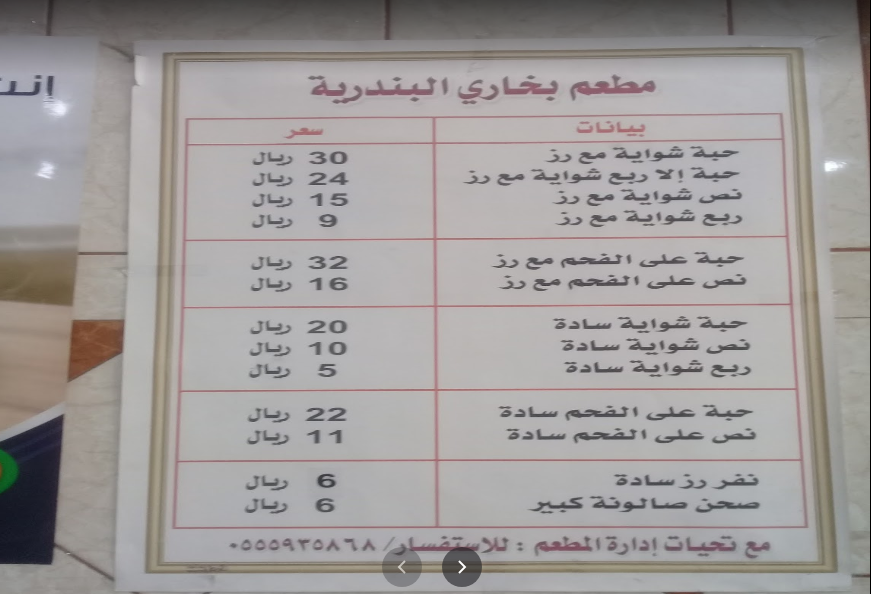 إنت
مطعم بخاري البندرية
بيانات سعر
حبة شواية مع رز 30 ريال
حبة إلا ربع شواية مع رز 24 ريال
نص شواية مع رز 15 ريال
ربع شواية مع رز 9 ريال
حبة على الفحم مع رز 32 ريال
نص على الفحم مع رز 16 ريال
حبة شواية سادة 20 ريال
نص شواية سادة 10 ريال
ربع شواية سادة 5 ريال
حبة على الفحم سادة 22 ريال
نص على الفحم سادة 11 ريال
نفر رز سادة 6 ريال
صحن صالونة كبير 6 ريال
مع تحيات إدارة المطعم : للاستفسار/ ٠٥٥٥٩٣٥٨٦٨